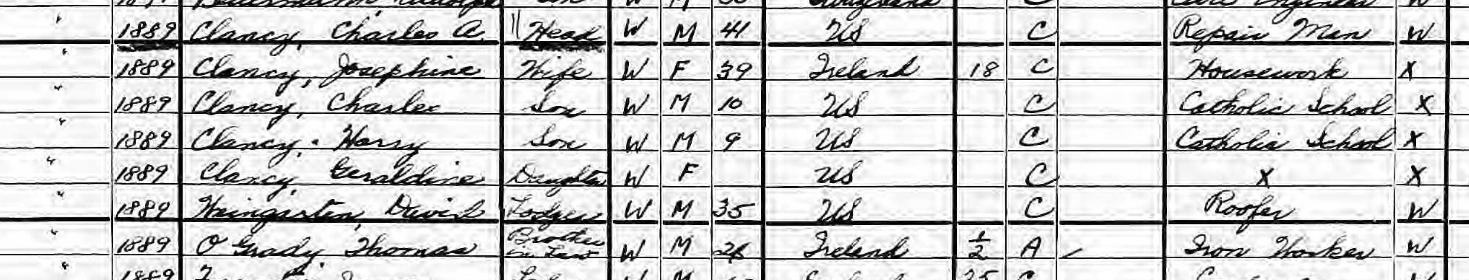 Son W M
" 1889 Clancy, Charles A. Head W M 41 US C Repair Man W
" 1889 Clancy, Josephine Wife W F 39 Ireland 18 C Housework X
" 1889 Clancy, Charles Son W M 10 US C Catholic School X
" 1889 Clancy, Harry Son W M 9 US C Catholic School X
" 1889 Clancy, Geraldine Daughter W F US C X X
" 1889 Weingarten, David Lodger W M 35 US C Roofer W
" 1889 O'Grady, Thomas Brother in Law W M Ireland 1/2 A Iron Worker W
" 1889